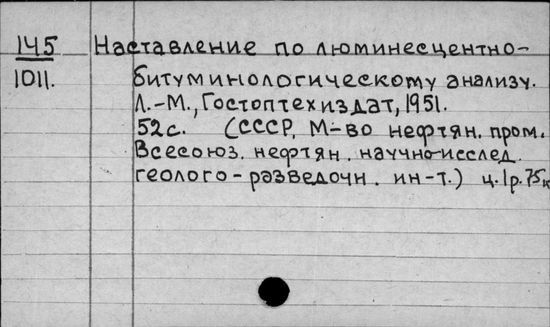 145 Наставление по люминесцентно-
1011. битуминологическому анализу.
Л.-М., Гостоптехиздат, 1951.
52с. (СССР, М-во нефтян. пром.
Всесоюз. нефтян. научно-исслед.
геолого-разведочн. ин-т.) ц.1р.75к